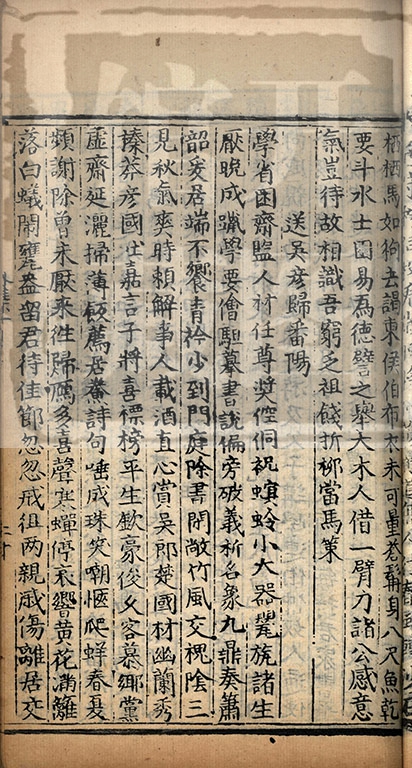 栖栖馬如狗去謁東侯伯布衣未可量蒼髯身八尺魚乾
要斗水士困易爲德譬之舉大木人借一臂力諸公感意
氣豈待故相識吾窮乏祖餞折柳當馬策
送吳彥歸番陽
學省困齏鹽人材任尊奬倥侗祝螟蛉小大器罍瓬諸生
厭晚成躐學要儈駔摹書說偏旁破義析名象九鼎奏簫
韶爰居端不饗青衿少到門庭除晝閑敞竹風交槐陰三
見秋氣爽時賴解事人載酒直心賞吳郎楚國材幽蘭秀
榛莽彥國佳嘉言子將喜標榜平生飲豪俊父客慕鄉黨
虛齋延灑掃薄飯薦詩句唾成珠笑嘲愜爬蛘春夏
頻謝除曾未厭來往歸鴈多喜聲寒蟬停哀響黃花滿籬
落白蟻鬧甕盎留君待佳節忽忽戒徂两親戚傷離居交